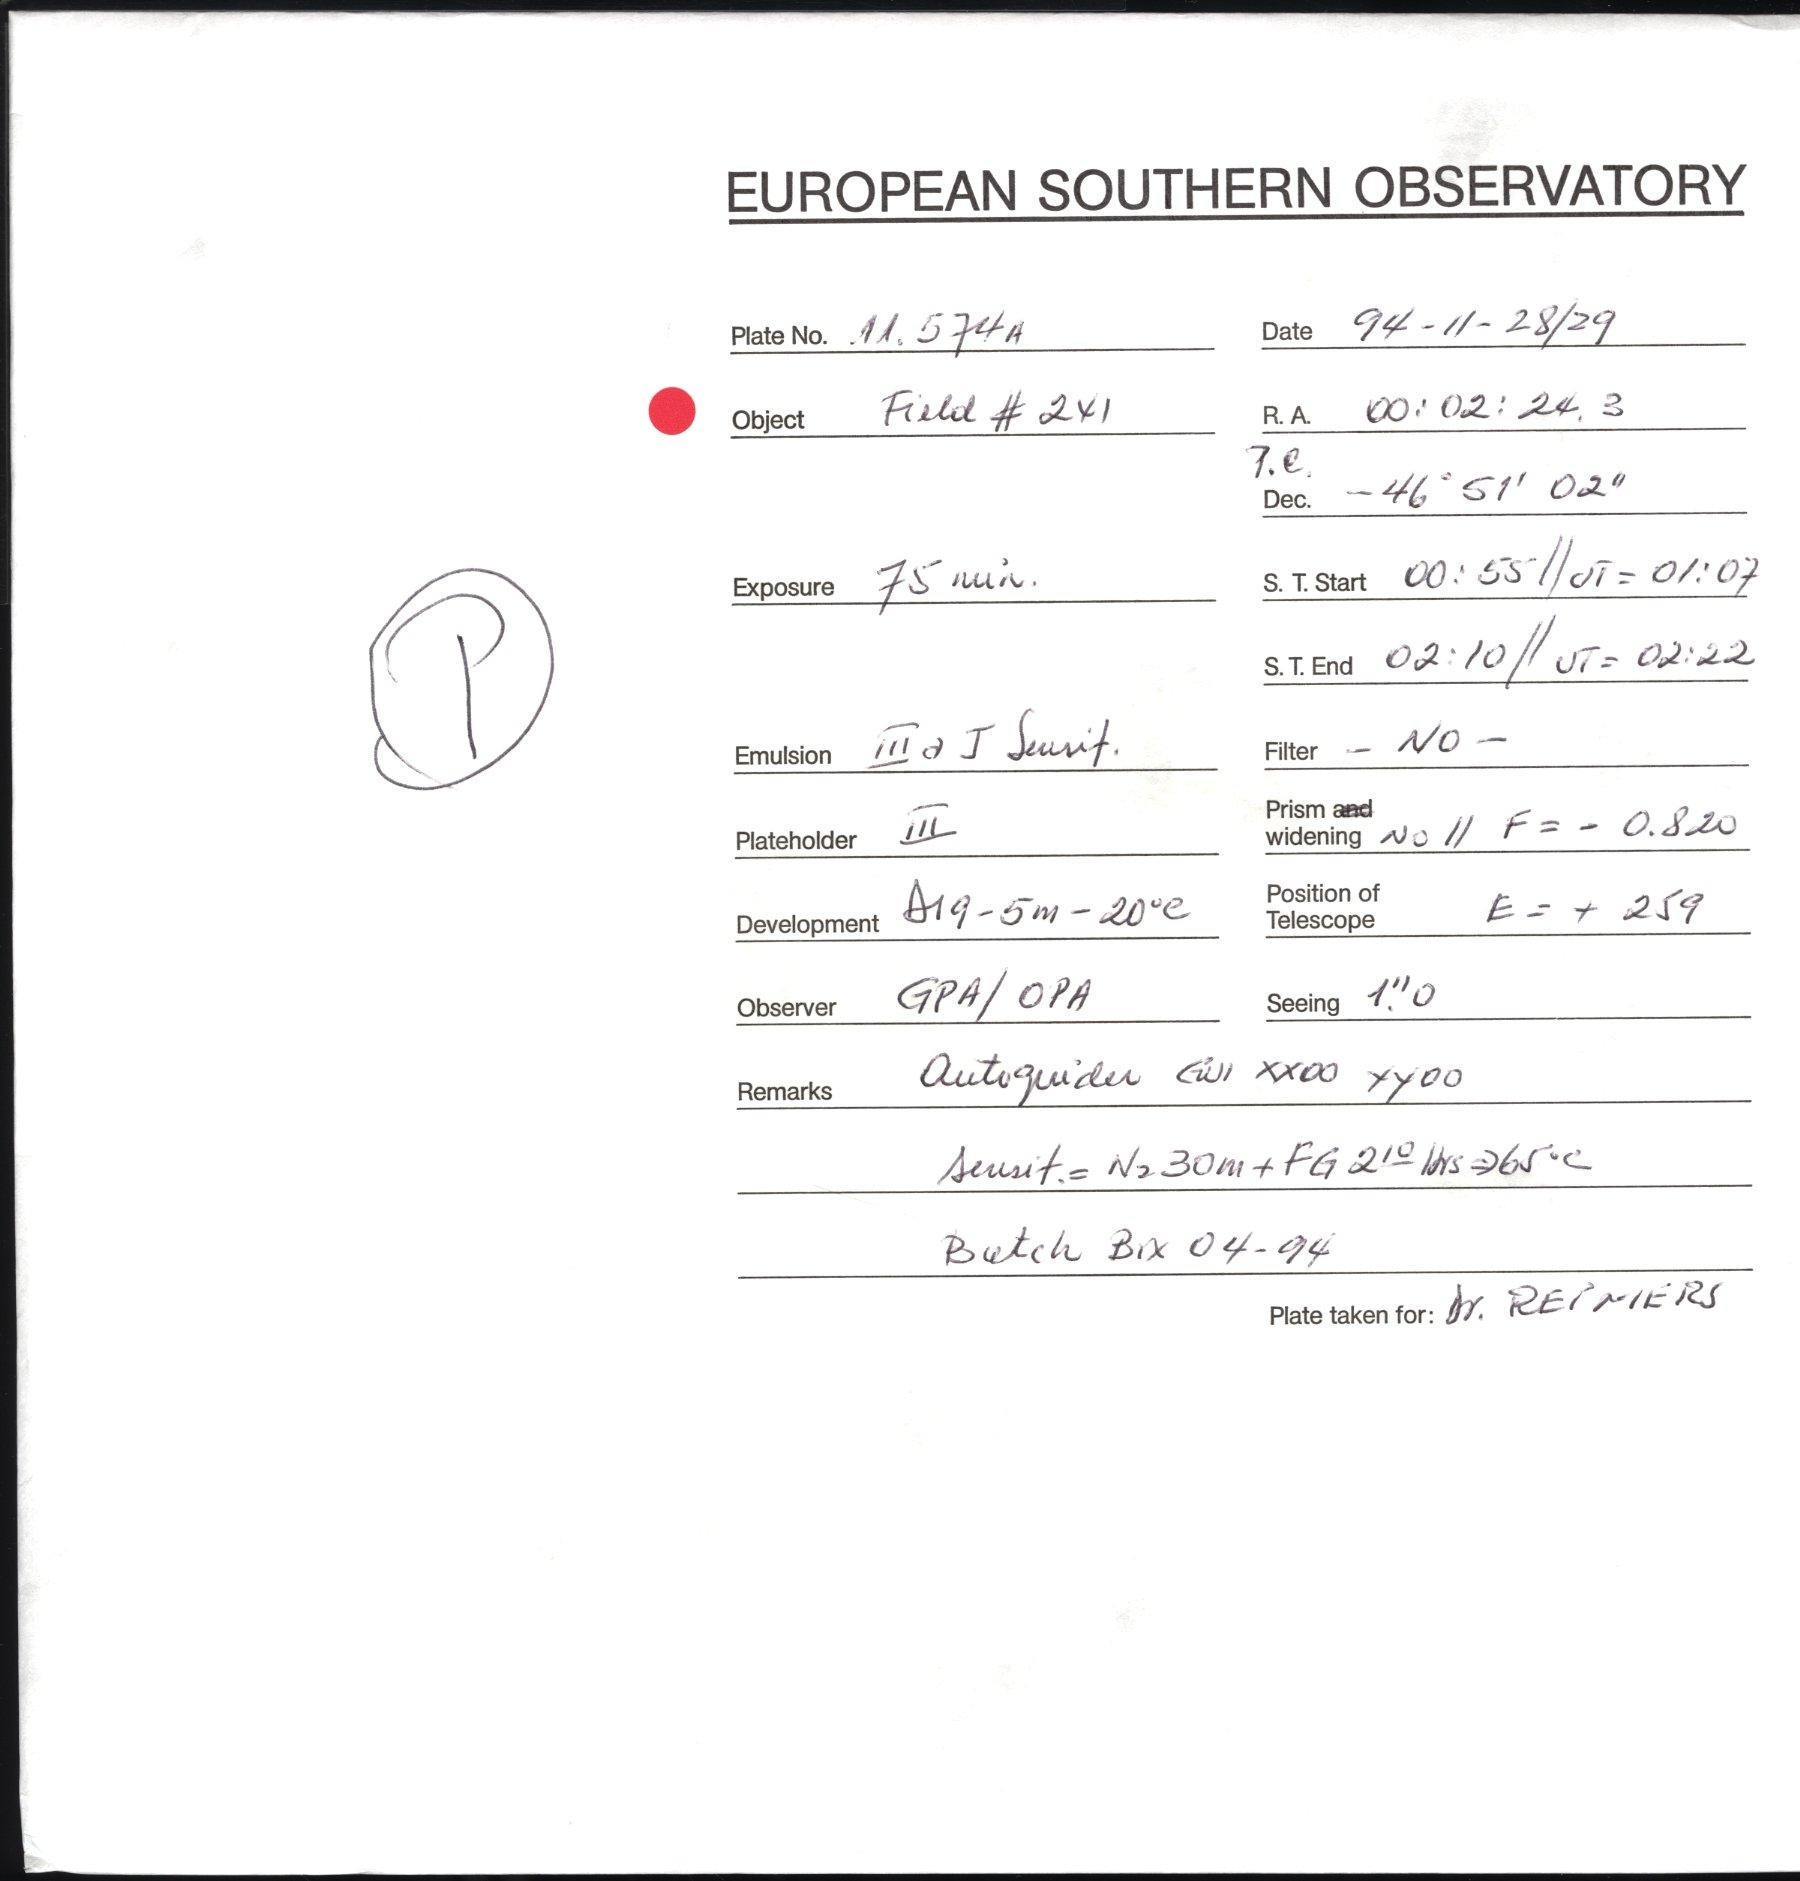 EUROPEAN SOUTHERN OBSERVATORY
Plate No. 11.574A
Date 94-11-28/29
Object Field # 241
R. A. 00:02:24.3
T.C.
Dec. -46° 51' 02"
Exposure 75 min.
S. T. Start 00:55 // UT = 01:07
S. T. End 02:10 // UT = 02:22
Emulsion III a J Sensit.
Filter - NO -
Plateholder III
Prism and
widening NO // F = - 0.820
Development D19-5m-20°C
Position of
Telescope E = + 259
Observer GPA/OPA
Seeing 1."0
Remarks Autoguider XX00 YY00
Sensit. = N2 30m + FG 2 hrs 65°C
Batch Box 04-94
Plate taken for: Dr. REIMERS
P